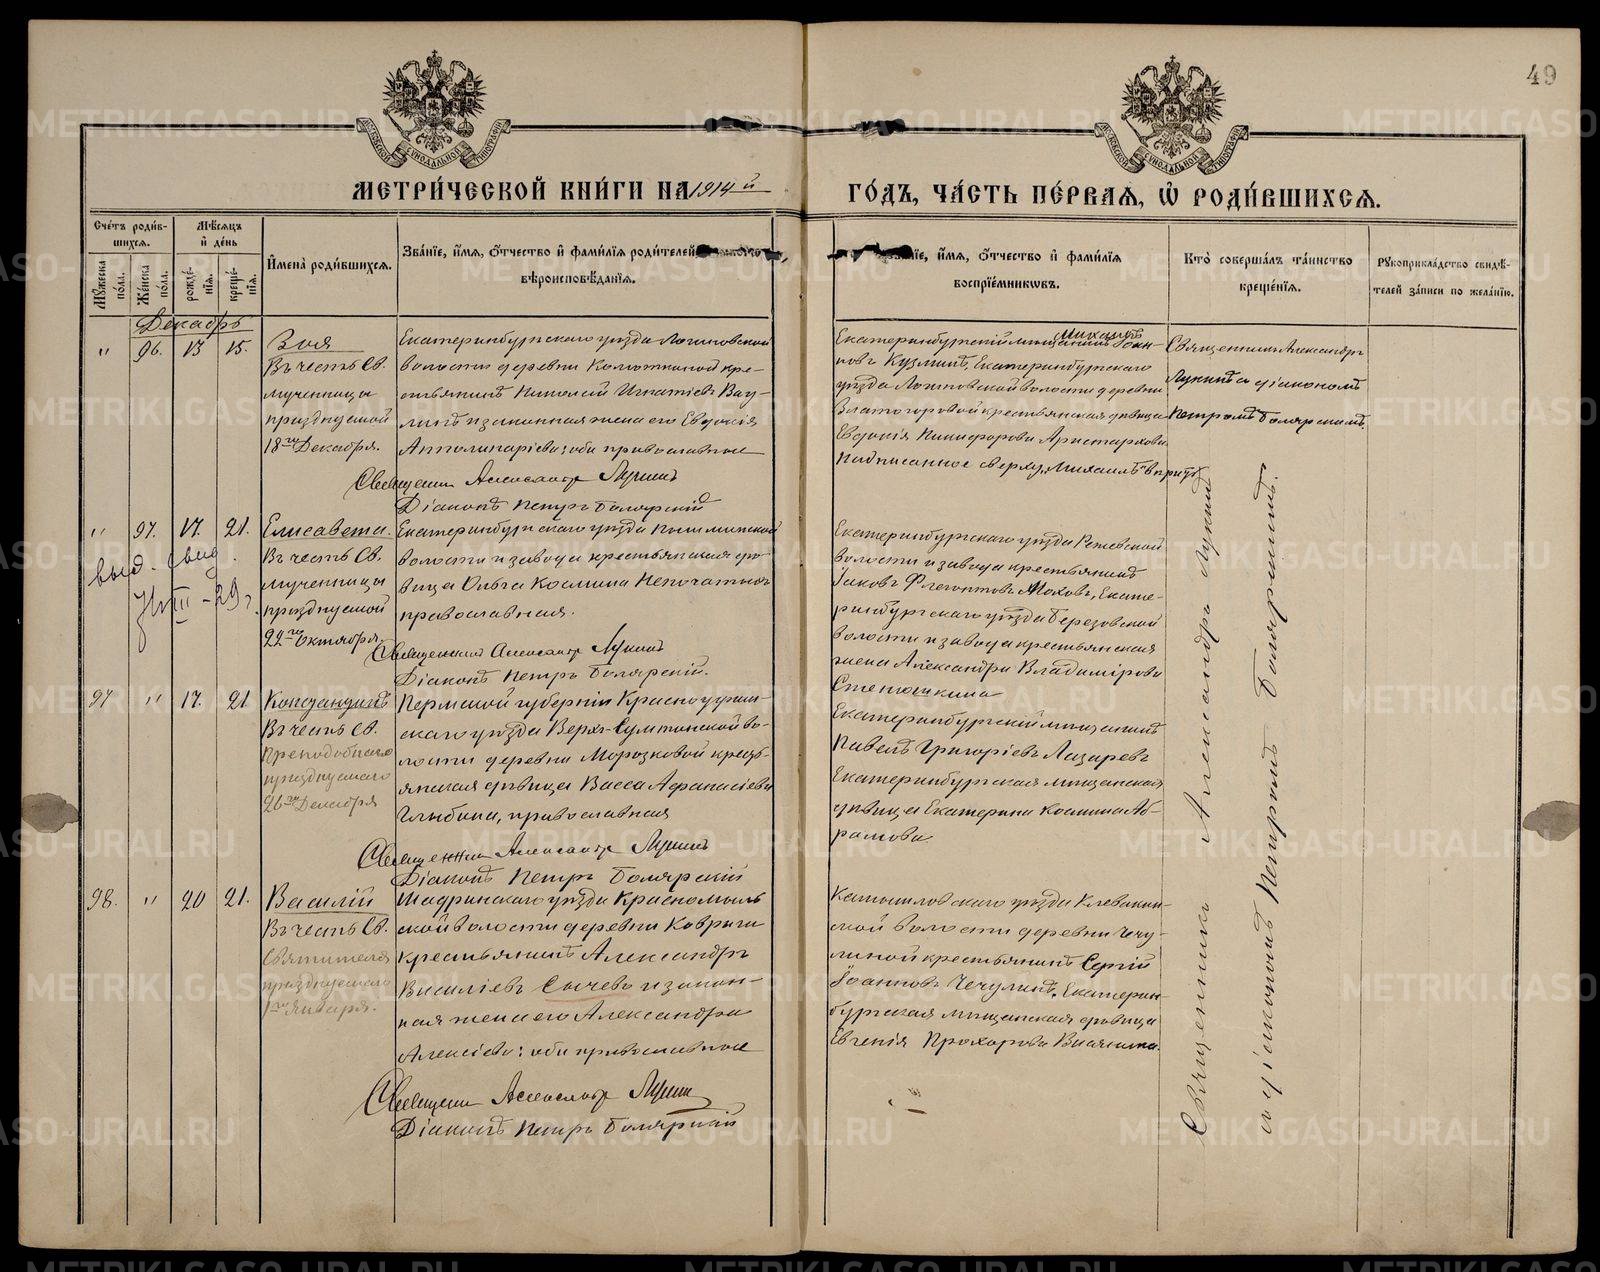 49
МЕТРИ́ЧЕСКОЙ КНИ́ГИ НА 1914 й
ГО́ДЪ, ЧА́СТЬ ПЕ́РВАѦ, Ѡ҆ РОДИ́ВШИХСѦ.
Сче́тъ роди́в-
шихсѧ.
Мꙋ́жеска по́ла.
Же́нска по́ла.
Мѣ́сѧцъ
и҆ де́нь
рожде́-
нїѧ.
креще́-
нїѧ.
И҆мена̀ роди́вшихсѧ.
Зва́нїе, и҆́мѧ, ѻ҆́тчество и҆ фами́лїѧ роди́телей
вѣроисповѣ́данїѧ.
и҆́мѧ, ѻ҆́тчество и҆ фами́лїѧ
воспрїе́мникѡвъ.
Кто̀ соверша́лъ та́инство
креще́нїѧ.
Рꙋкоприкла́дство свидѣ́-
телей за́писи по жела́нїю.
Декабрь
" 96. 13 15.
Зоя
Въ честь Св.
мученицы
празднуемой
18го Декабря.
Екатеринбургскаго уѣзда Логиновской
волости деревни Колюткиной кре-
стьянинъ Николай Игнатіевъ Вау-
линъ и законная жена его Евдокія
Апполинаріева: оба православные
Священникъ Александръ Лукинъ
Діаконъ Петръ Боярскій
Екатеринбургскій мѣщанинъ Михаилъ Іоан-
новъ Кузминъ, Екатеринбургскаго
уѣзда Логиновской волости деревни
Златогоровой крестьянская дѣвица
Евдокія Никифорова Аристархова
Надписанное сверху „Михаилъ"
Священникъ Александръ
Лукинъ съ діакономъ
Петромъ Боярскимъ.
" 97. 17. 21.
выд. свид.
7/VIII – 29 г.
Елисавета.
Въ честь Св.
мученицы
празднуемой
22го Октября.
Екатеринбургскаго уѣзда Пышминской
волости и завода крестьянская дѣ-
вица Ольга Космина Непочатыхъ
православная.
Священникъ Александръ Лукинъ
Діаконъ Петръ Боярскій.
Екатеринбургскаго уѣзда Режевской
волости и завода крестьянинъ
Іаковъ Флегонтовъ Моховъ, Екате-
ринбургскаго уѣзда Березовской
волости и завода крестьянская
жена Александра Владимірова
97 " 17. 21
Константинъ
Въ честь Св.
Преподобнаго
празднуемаго
26го Декабря
Пермской губерніи Красноуфим-
скаго уѣзда Верхъ-Суксунской во-
лости деревни Морозковой кресть-
янская дѣвица Васса Афанасіева
Глыбина, православная
Священникъ Александръ Лукинъ
Діаконъ Петръ Боярскій
Екатеринбургскій мѣщанинъ
Павелъ Григоріевъ Лазаревъ
Екатеринбургская мѣщанская
дѣвица Екатерина Космина Аб-
рамова.
98. " 20 21.
Василій
Въ честь Св.
Святителя
празднуемаго
1го Января.
Шадринскаго уѣзда Красномыль-
ской волости деревни Ковриги
крестьянинъ Александръ
Василіевъ Сычевъ и закон-
ная жена его Александра
Алексіева: оба православные
Священникъ Александръ Лукинъ
Діаконъ Петръ Боярскій
Камышловскаго уѣзда Клевакин-
ской волости деревни Чечу-
линой крестьянинъ Сергій
Іоанновъ Чечулинъ, Екатерин-
бургская мѣщанская дѣвица
Евгенія Прохорова
Священникъ Александръ Лукинъ
съ діакономъ Петромъ Боярскимъ.
METRIKI.GASO-URAL.RU